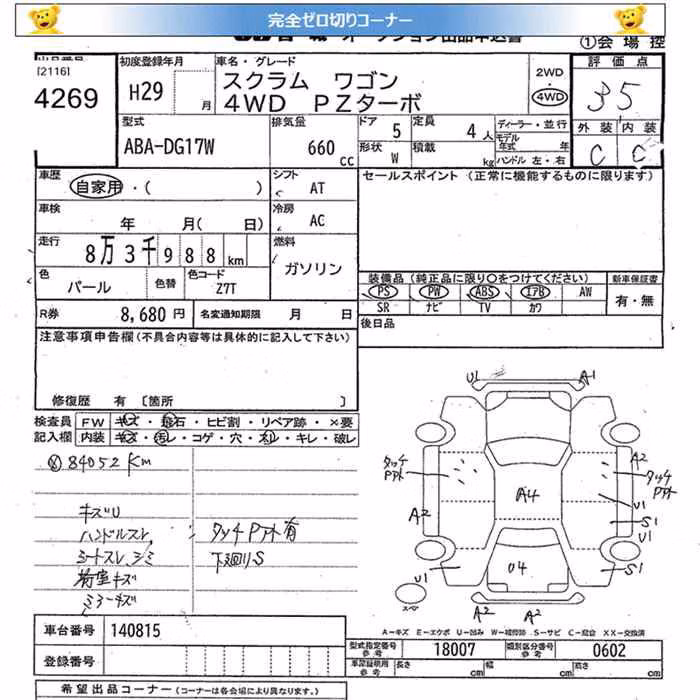 完全ゼロ切りコーナー
①会場控
[2116]
4269
初度登録年月
H29 月
車名・グレード
スクラム ワゴン
4WD PZターボ
2WD
4WD
評価点
3.5
外装 内装
C C
型式
ABA-DG17W
排気量
660 cc
ドア 5
形状 W
定員 4 人
積載 kg
ディーラー・並行
モデル年式 年
ハンドル 左・右
車歴
自家用・( )
シフト AT
セールスポイント (正常に機能するものに限ります)
車検
年 月( 日)
冷房 AC
走行
8万3千988 km
燃料
ガソリン
色
パール
色替
色コード
Z7T
装備品 (純正品に限り○をつけてください)
新車保証書
PS PW ABS エアB AW
SR ナビ TV カワ
有・無
R券 8,680 円
名変通知期限 月 日
後日品
注意事項申告欄 (不具合内容等は具体的に記入して下さい)
修復歴 有 〔箇所 〕
検査員記入欄
FW キズ・飛石・ヒビ割・リペア跡・×要
内装 キズ・汚レ・コゲ・穴・スレ・キレ・破レ
84052 Km
キズU
ハンドルスレ
シートスレ、シミ
荷室キズ
ミラーキズ
タッチPアト有
下廻りS
U1 A1
タッチPアト
A2
A4
A2
タッチPアト
U1
S1
U1
U1
U4
S1
スペア
A2 A2
A-キズ E-エクボ U-凹み W-補修跡 S-サビ C-腐蝕 XX-交換済
車台番号 140815
登録番号
型式指定番号 参考 18007
類別区分番号 参考 0602
車庫証明用 参考 長さ cm 幅 cm 高さ cm
希望出品コーナー (コーナーは各会場により異なります。)